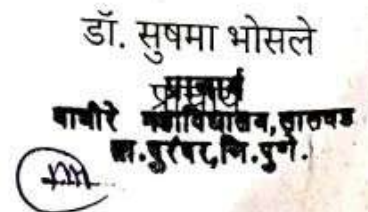 डॉ. सुषमा भोसले
प्राचार्य
वाघीरे महाविद्यालय, सासवड
ता.पुरंदर,जि.पुणे.